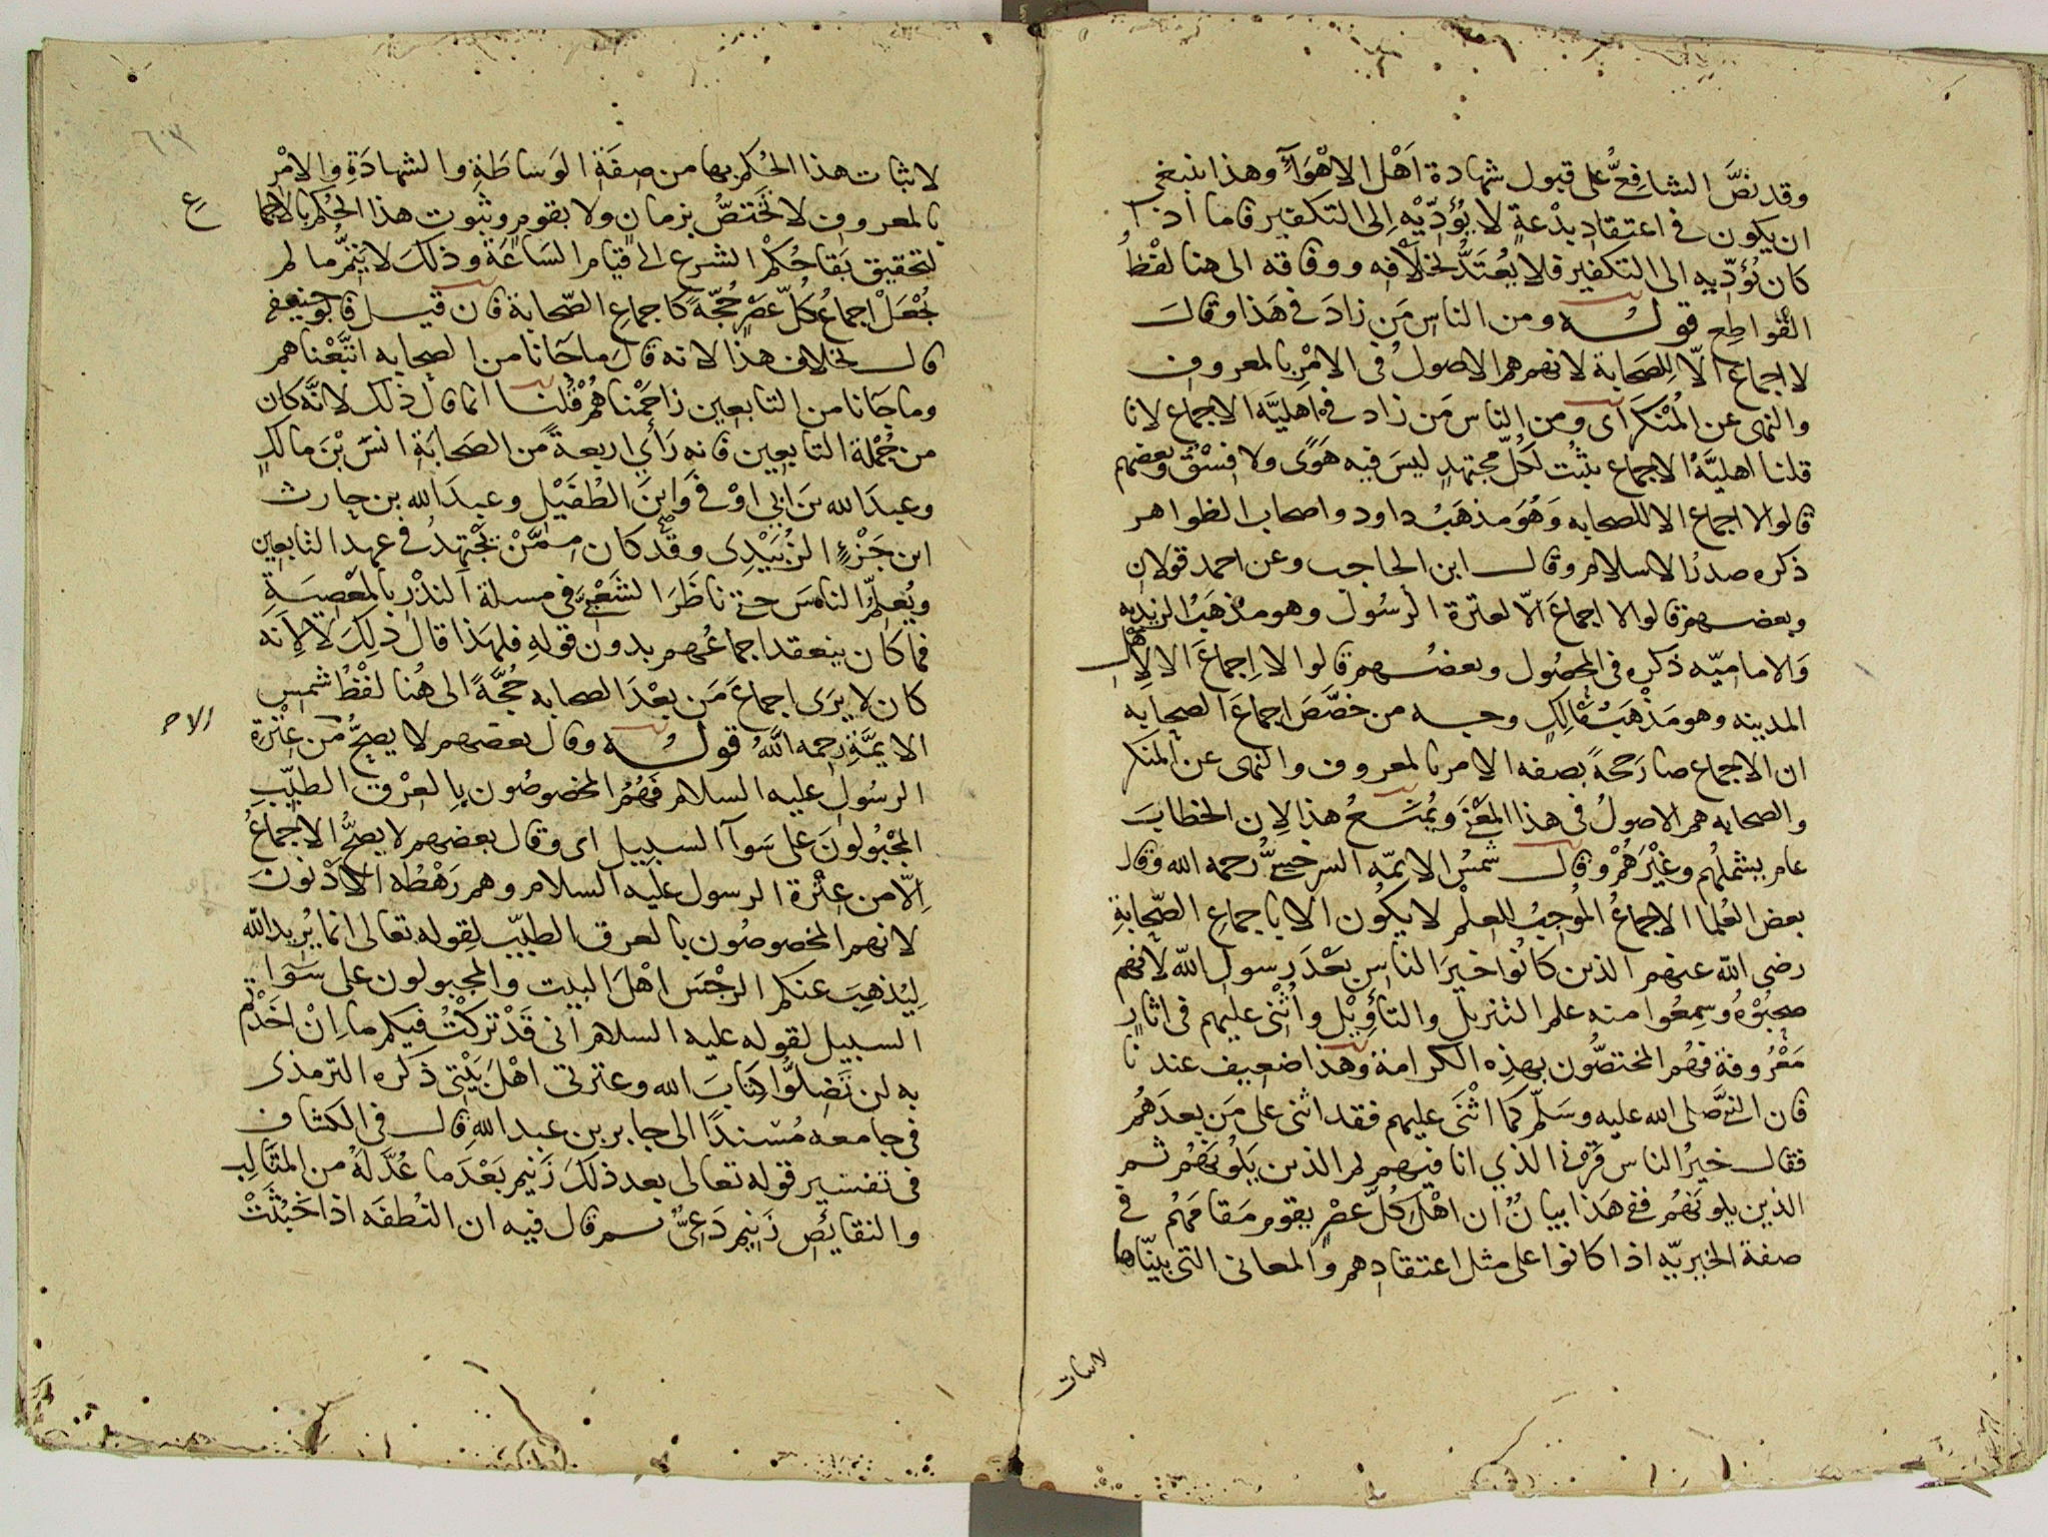 وقد نصَّ الشافِعيُّ على قبول شهادة اَهْل الاهْوَآءِ وهذا ينبغى
ان يكون فى اعتقادِ بِدْعةٍ لا يُؤَدِّيْهِ اِلى التكفير فاما اذا
كان يُؤدِّيه الى التكفير فلا يُعْتَدُّ بخلَافِه ووفاقه الى هنا لفْظُ
القواطِع قولـــه ومن الناسِ مَن زادَ فى هَذا وقالَ
لا اجماعَ الّا لِلصَحابة لانهم هم الاصولُ فى الامْرِ بالمعروف
والنهى عن المُنْكَر اَى ومن الناس مَن زاد فى اهليَّه الاجماع لانا
قلنا اهليَّةُ الاجماع يثبُت لكُلّ مجتهدٍ ليسَ فيه هَوًى ولا فِسْقٌ وبعضهم
قالوا لا اجماع الا للصحابه وَهُوَ مذهَبُ داود واصحاب الظواهر
ذكره صدرُ الاسلام وقال ابن الحاجب وعن احمد قولان
وبعضهم قالوا لا اجماعَ الّا لعترة الرسُول وهو مذهَبُ الزيديه
وَالاماميّه ذكره فى المحصُول وبعضُهم قالوا لا اِجماعَ الا لِاهْل
المدينه وهو مَذْهَبُ مَالِكٍ وجه من خصَّصَ اجماعَ الصحابه
ان الاجماع صارَ حجةً بصفه الامر بالمعروف والنهى عن المنكر
والصحابه هم الاصولُ فى هذا المَعْنَى ويُمْنَـعُ هذا لِان الخطابَ
عام يشملُهم وغَيْرَهُمْ وقال شمسُ الايمّه السرخسىُّ رحمه الله وقال
بعض العُلما الاجماعُ المُوجِبُ للعِلْم لا يكُون الا باجماعِ الصَّحابةِ
رضى الله عنهم الذين كانُوا خيرَ الناسِ بعْدَ رسولِ اللهِ لانهم
صحِبُوْهُ وسِمِعُوا منه علم التنزيل والتأوِيْل واُثْنِى عليهم فى اثارٍ
مَعْرُوفة فهُم المختصُّون بهذِه الكرامة وهذا ضعِيف عندنا
فان النبىَّ صلى الله عليه وسَلّم كما اثْنَى عليهم فقد اثنى على مَن بعدَهُم
فقال خيرُ الناس قَرْنى الذي انا فيهم ثم الذين يَلُونَهُم ثم
الذين يلونَهُم ففى هَذا بيانٌ ان اهْلَ كُلّ عصْرٍ يقوم مَقامَهُم فى
صفة الخيريّه اذا كانوا على مثل اعتقادِهم والمعانى التى بينّاها
لاثبات
لاثبات هذا الحُكم بها من صِفَةِ الوَساطَةِ والشهادَةِ والامْرِ
بالمعروف لا تختصُّ بزمانٍ ولا بقومٍ وثبوت هذا الحُكم بالاجما
ع
لتحقيق بَقا حُكْم الشرع الى قيام السَاعَة وذلكَ لا يتمُّ ما لم
يُجْعَلْ اجماعُ كُلّ عصْرٍ حُجّةً كاجماعِ الصّحابة فان قيـل فابو حنيفه
قال بخلاف هذا لانه قالَ ما جَانا من الصحابه اتبَّعْناهم
وما جَانا من التابعِين زاحَمْناهُمْ قُلْنا انما قال ذلك لانَّه كان
من جُمْلة التابعِين فانه رَأى اربعةً من الصَحابَةِ انسَ بْنَ مالكٍ
وعبدَ الله بنَ ابى اوْفى وَابنَ الطُفَيْل وعبدَ الله بن حارث
ابن جَزْءٍ الزُبَيْدِى وقد كان مِمَّنْ يَجْتهِدُ فى عهد التابعِين
ويُعلِّمُ الناسَ حتى ناظَرَ الشَعْبىَّ فى مسلة النذْر بالمعْصِيَةِ
فما كان ينعقد اجماعُهم بدون قولِهِ فلهَذا قالَ ذلِكَ لا لِأنه
كان لا يرَى اجماعَ مَن بعْدَ الصحابه حُجَّةً الى هُنا لفْظُ شمسِ
الايمَّةِ رحمه اللهُ قولـــه وقال بعضهم لا يصحُّ الا من عِتْرَة
الرسُول عليه السلام فَهُمُ المخصوصُون بالعِرْق الطيِّبِ
المجْبُولونَ على سَوآ السبيلِ اى وقال بعضهم لا يصحُّ الاجماعُ
اِلّا من عِتْرة الرسول عليه السلام وهم رَهْطُه الادْنونَ
لانهم المخصوصُون بالعرق الطيِّب لقوله تعالى انما يُرِيد الله
لِيُذهِبَ عنكم الرجْسَ اهْلَ البيت والمجبولون على سَوا
السبيل لقوله عليه السلام انى قَدْ تركتُ فيكم ما اِنْ اخَذْتُم
به لن تَضِلُّوا كِتابَ الله وعترتى اهْلَ بَيْتِى ذكره الترمذى
فى جامعه مُسْندًا الى جابر بن عبد اللهِ قال فى الكشّاف
فى تفسير قوله تعالى بعد ذلكَ زَنيم بَعْدَما عُدَّ لهُ من المثالِب
والنقايص زَنِيم دَعىٌّ ثم قال فيه ان النُطفَه اذا خَبُثَتْ